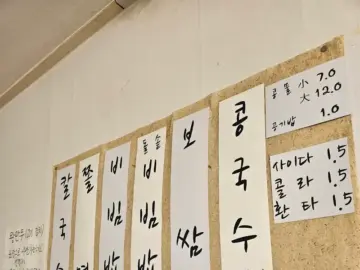 칼국수
쫄면
비빔밥
돌솥
비빔밥
보쌈
콩국수
콩물 小 7.0
大 12.0
공기밥 1.0
사이다 1.5
콜라 1.5
환타 1.5